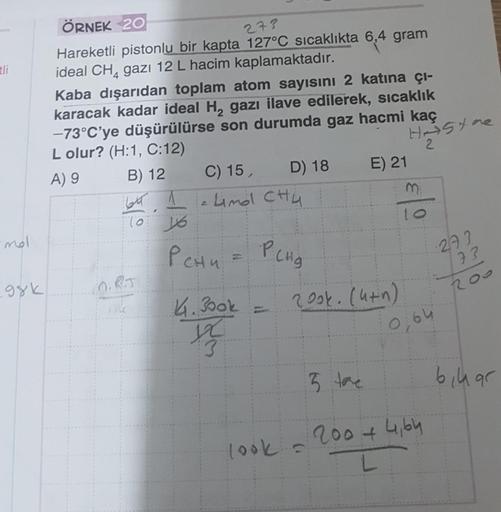 ÖRNEK 20
273
Hareketli pistonlu bir kapta 127°C sıcaklıkta 6,4 gram
ideal CH₄ gazı 12 L hacim kaplamaktadır.
Kaba dışarıdan toplam atom sayısını 2 katına çı-
karacak kadar ideal H₂ gazı ilave edilerek, sıcaklık
–73°C'ye düşürülürse son durumda gaz hacmi kaç
L olur? (H:1, C:12)
A) 9 B) 12 C) 15 D) 18 E) 21
64/10 · 1/16 = 4 mol CH4
m/10
mol
273
73
200
P CH4 = P
n.RT
4.300k/12 = 200k.(4+n)/0,64
3
5 tane
6,4 gr
100k = 200 + 4,64 / L